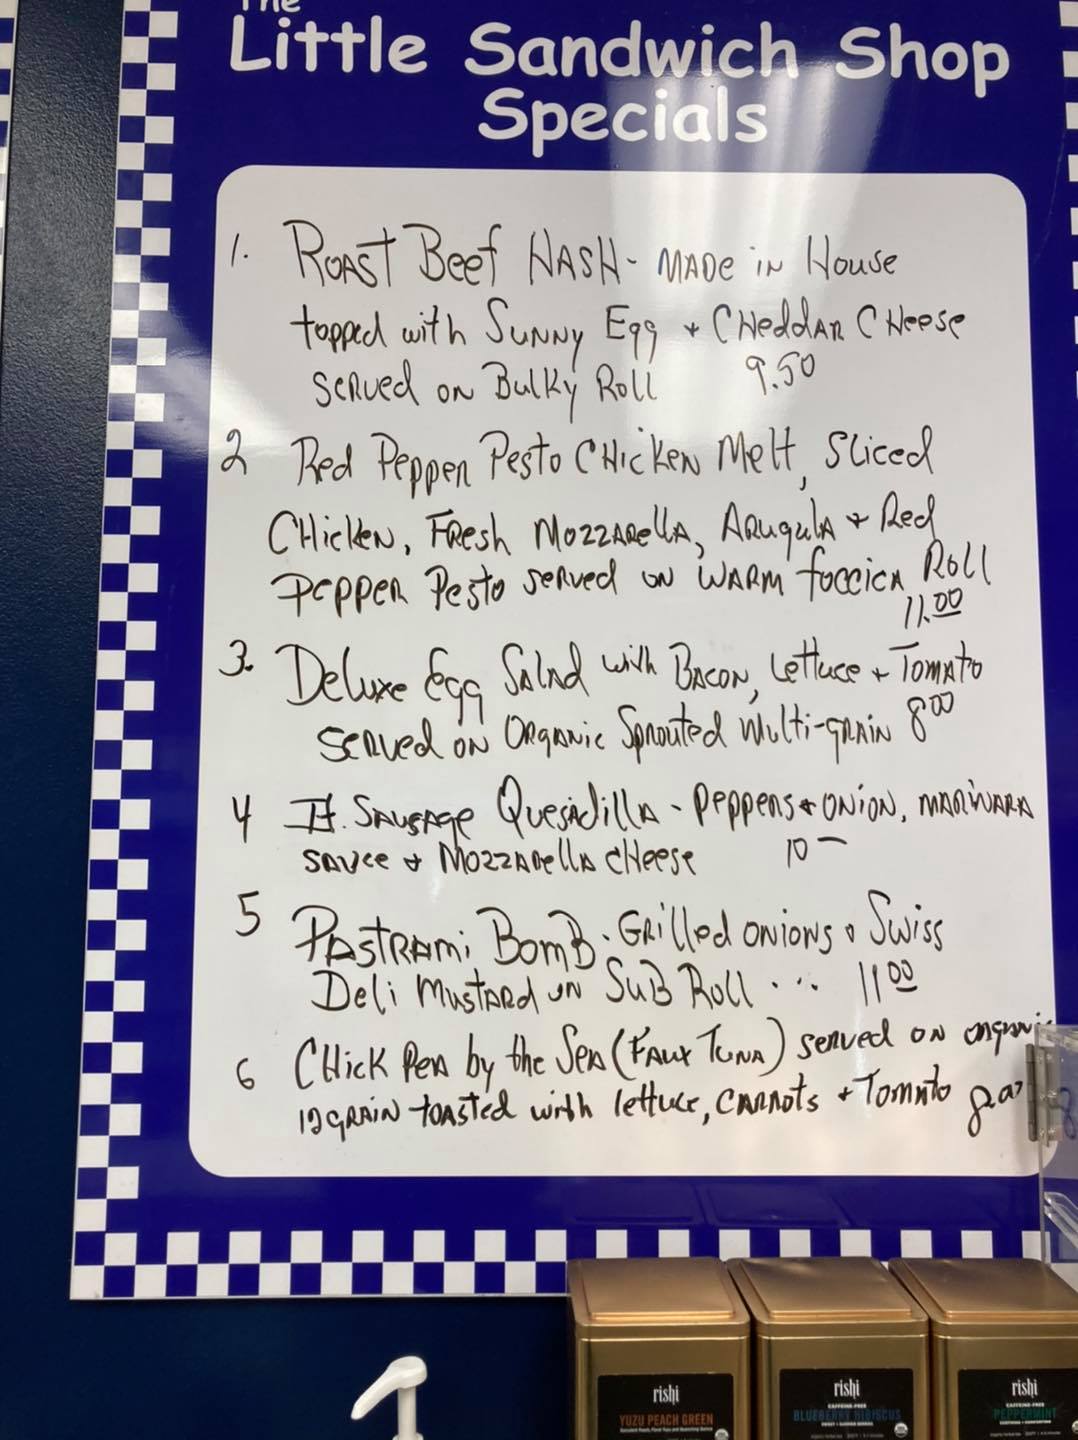 The
Little Sandwich Shop
Specials
1. Roast Beef Hash - made in House
topped with Sunny Egg + Cheddar Cheese
served on Bulky Roll 9.50
2 Red Pepper Pesto Chicken Melt, Sliced
Chicken, Fresh Mozzarella, Arugula + Red
Pepper Pesto served on warm foccica Roll
11.00
3. Deluxe Egg Salad with Bacon, Lettuce + Tomato
served on Organic Sprouted Multi-grain 8.00
4 It. Sausage Quesadilla - Peppers + onion, marinara
sauce + Mozzarella cheese 10 -
5 Pastrami Bomb. Grilled onions + Swiss
Deli Mustard on Sub Roll ... 11.00
6 Chick Pea by the Sea (Faux Tuna) served on organic
12 grain toasted with lettuce, carrots + Tomato 8.00
rishi
YUZU PEACH GREEN
rishi
CAFFEINE-FREE
BLUEBERRY HIBISCUS
rishi
CAFFEINE-FREE
PEPPERMINT